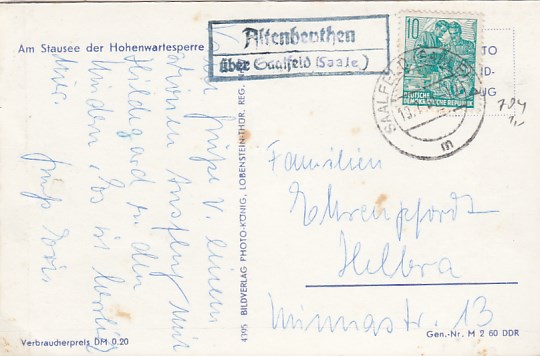 Am Stausee der Hohenwartesperre
Altenbeuthen
über Saalfeld (Saale)
10
DEUTSCHE
DEMOKRATISCHE REPUBLIK
SAALFELD (S
m
TO
ID-
UG
784
1,-
v. einem
Ausflug mit
Hildegard u. den
Kindern. Es ist herrlich
hier.
Familien
Ehrenpfordt
Helbra
13
4195 BILDVERLAG PHOTO-KÖNIG, LOBENSTEIN-THÜR. REG.
Verbraucherpreis DM 0.20
Gen.-Nr. M 2 60 DDR